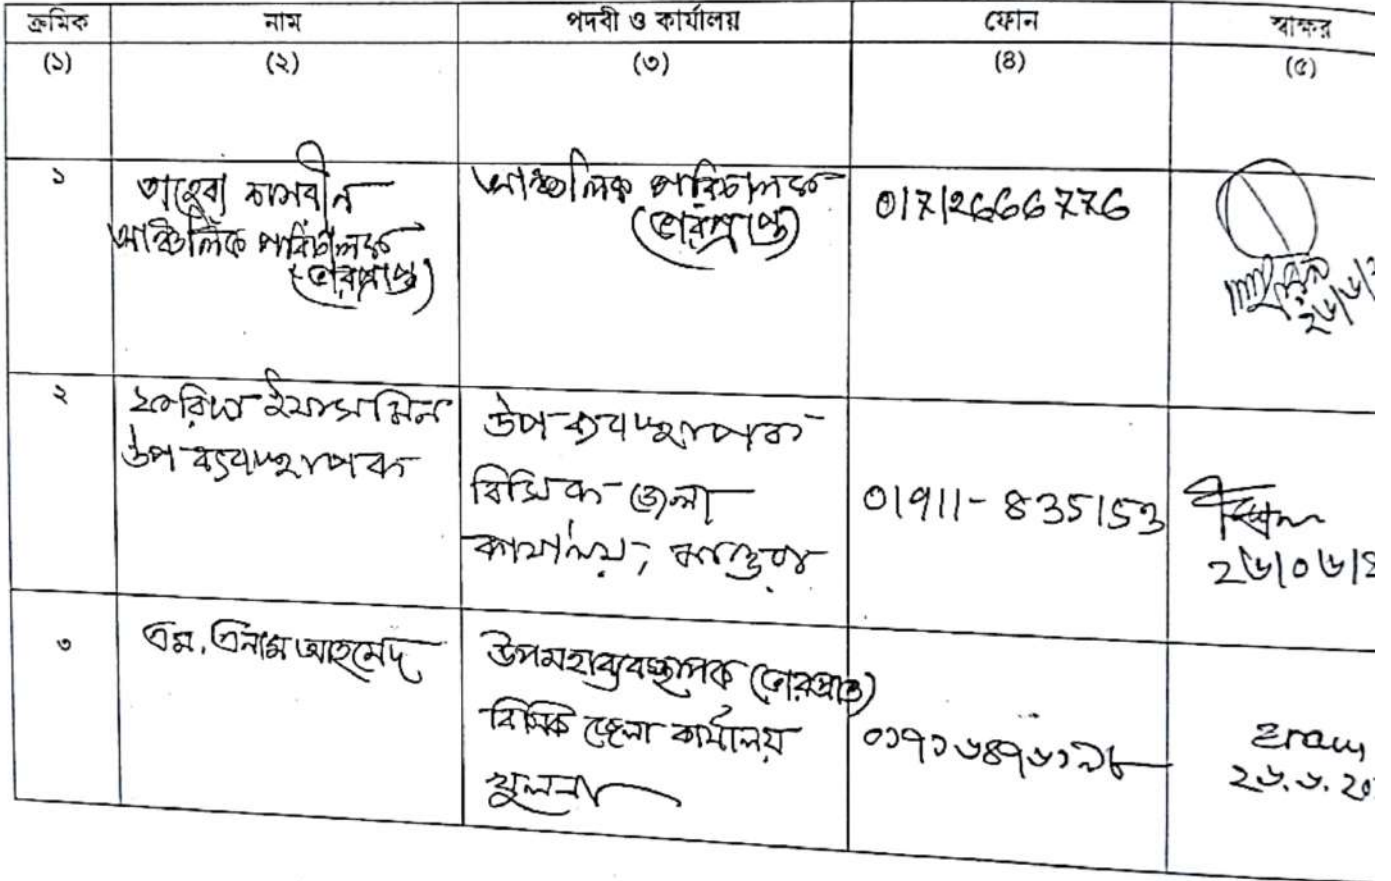 ক্রমিক নাম পদবী ও কার্যালয় ফোন স্বাক্ষর
(১) (২) (৩) (৪) (৫)
১
তাহেরা নাসরীন
আঞ্চলিক পরিচালক
(ভারপ্রাপ্ত)
আঞ্চলিক পরিচালক
(ভারপ্রাপ্ত)
01712666776
২৬/৬/২
২
ফরিদা ইয়াসমিন
উপ ব্যবস্থাপক
উপ ব্যবস্থাপক
বিসিক জেলা
কার্যালয়, মাগুরা
01911-835153
২৬/০৬/২
৩
এম. এনাম আহমেদ
উপমহাব্যবস্থাপক (ভারপ্রাপ্ত)
বিসিক জেলা কার্যালয়
খুলনা
০১৭১৬৪৭৬১৯৮
Enam
২৬.৬.২০